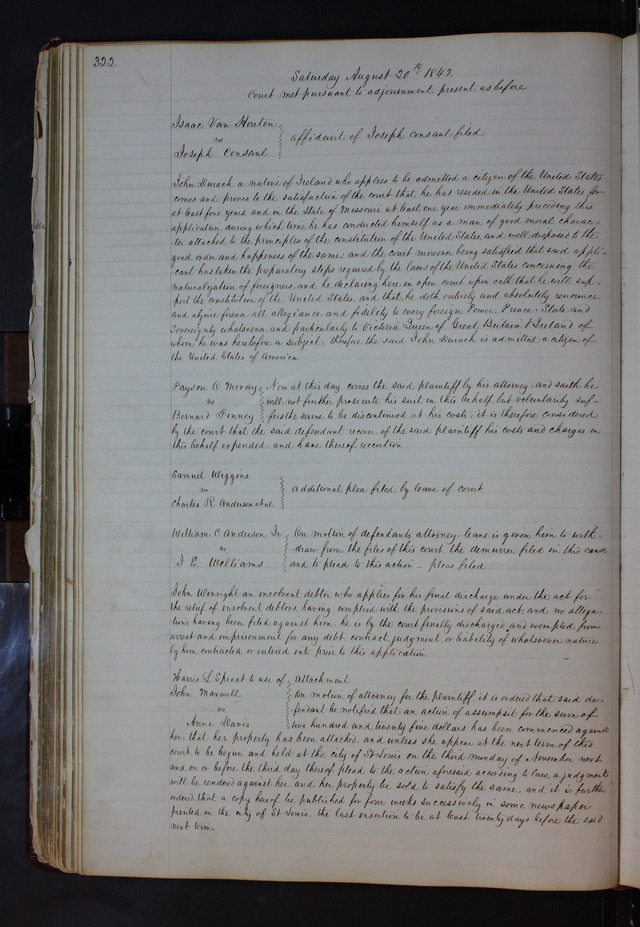 322
Saturday August 20th 1842
Court met pursuant to adjournment present as before
Isaac Van Houten
vs
Joseph Consaul
affidavit of Joseph Consaul filed
John Durack a native of Ireland who applies to be admitted a citizen of the United States
comes and proves to the satisfaction of the court that he has resided in the United States for
at least five years, and in the State of Missouri at least one year immediately preceding this
application during which time he has conducted himself as a man of good moral charac-
ter attached to the principles of the constitution of the United States, and well disposed to the
good order and happiness of the same; and the court moreover being satisfied that said appli-
cant has taken the preparatory steps required by the laws of the United States concerning the
naturalization of foreigners, and he declaring here in open court upon oath that he will sup-
port the constitution of the United States, and that he doth entirely and absolutely renounce
and abjure forever all allegiance and fidelity to every foreign Power, Prince, State and
Sovereignty whatsoever and particularly to Victoria Queen of Great Britain & Ireland of
whom he was heretofore a subject; therefore the said John Durack is admitted a citizen of
the United States of America
Payson &
vs
Bernard
Now at this day comes the said plaintiff by his attorney and saith he
will not further prosecute his suit in this behalf but voluntarily suf-
fers the same to be discontinued at his costs; it is therefore considered
by the court that the said defendant recover of the said plaintiff his costs and charges in
this behalf expended and have thereof execution
Samuel Wiggins
vs
Charles R Anderson et al
additional plea filed by leave of court
William C Anderson Jr
vs
J. E. Williams
On motion of defendants attorney leave is given him to with-
draw from the files of this court, the demurrer filed in this case
and to plead to this action – pleas filed
John Wenright an insolvent debtor who applies for his final discharge under the act for
the relief of insolvent debtors, having complied with the provisions of said act, and no allega-
tions having been filed against him, he is by the court finally discharged and exempted from
arrest and imprisonment for any debt, contract, judgment or liability of whatsoever nature
by him contracted or entered into prior to this application
Harris L Sproat to use of
John Maxwell
vs
Anne Davis
Attachment
On motion of attorney for the plaintiff it is ordered that said de-
fendant be notified that an action of assumpsit for the sum of
two hundred and twenty five dollars has been commenced against
her that her property has been attached, and unless she appear at the next term of this
court, to be begun and held at the city of St Louis on the third monday of November next
and on or before the third day thereof plead to the action aforesaid according to law, a judgment
will be rendered against her and her property be sold to satisfy the same. and it is further
ordered that a copy hereof be published for four weeks successively in some newspaper
printed in the city of St Louis, the last insertion to be at least twenty days before the said
next term.